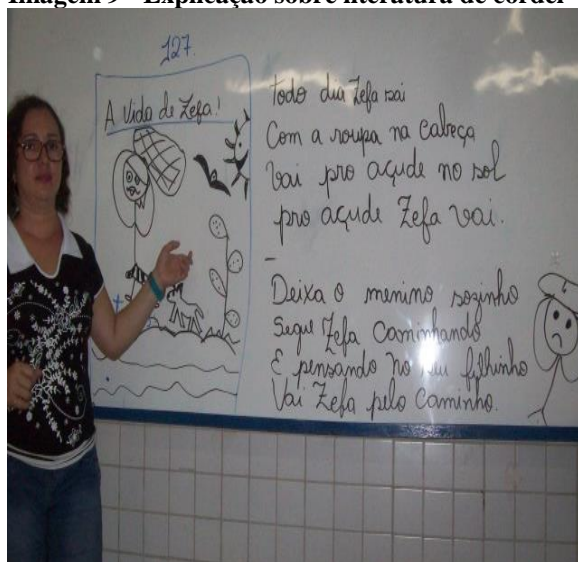 Imagem 9 – Explicação sobre literatura de cordel
127.
A Vida de Zefa!
todo dia Zefa sai
Com a roupa na Cabeça
Vai pro açude no sol
pro açude Zefa vai.
Deixa o menino sozinho
Segue Zefa Caminhando
E pensando no seu filhinho
Vai Zefa pelo Caminho.